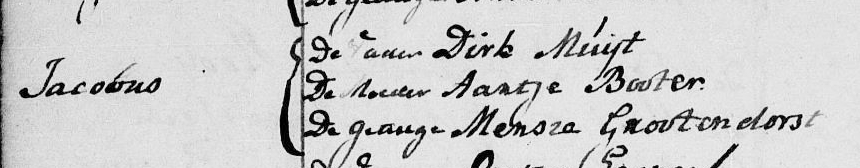 De getuige
Jacobus
De Vader Dirk Muijt
De Moeder Aantje Booter
De getuige Mensze Grootendorst